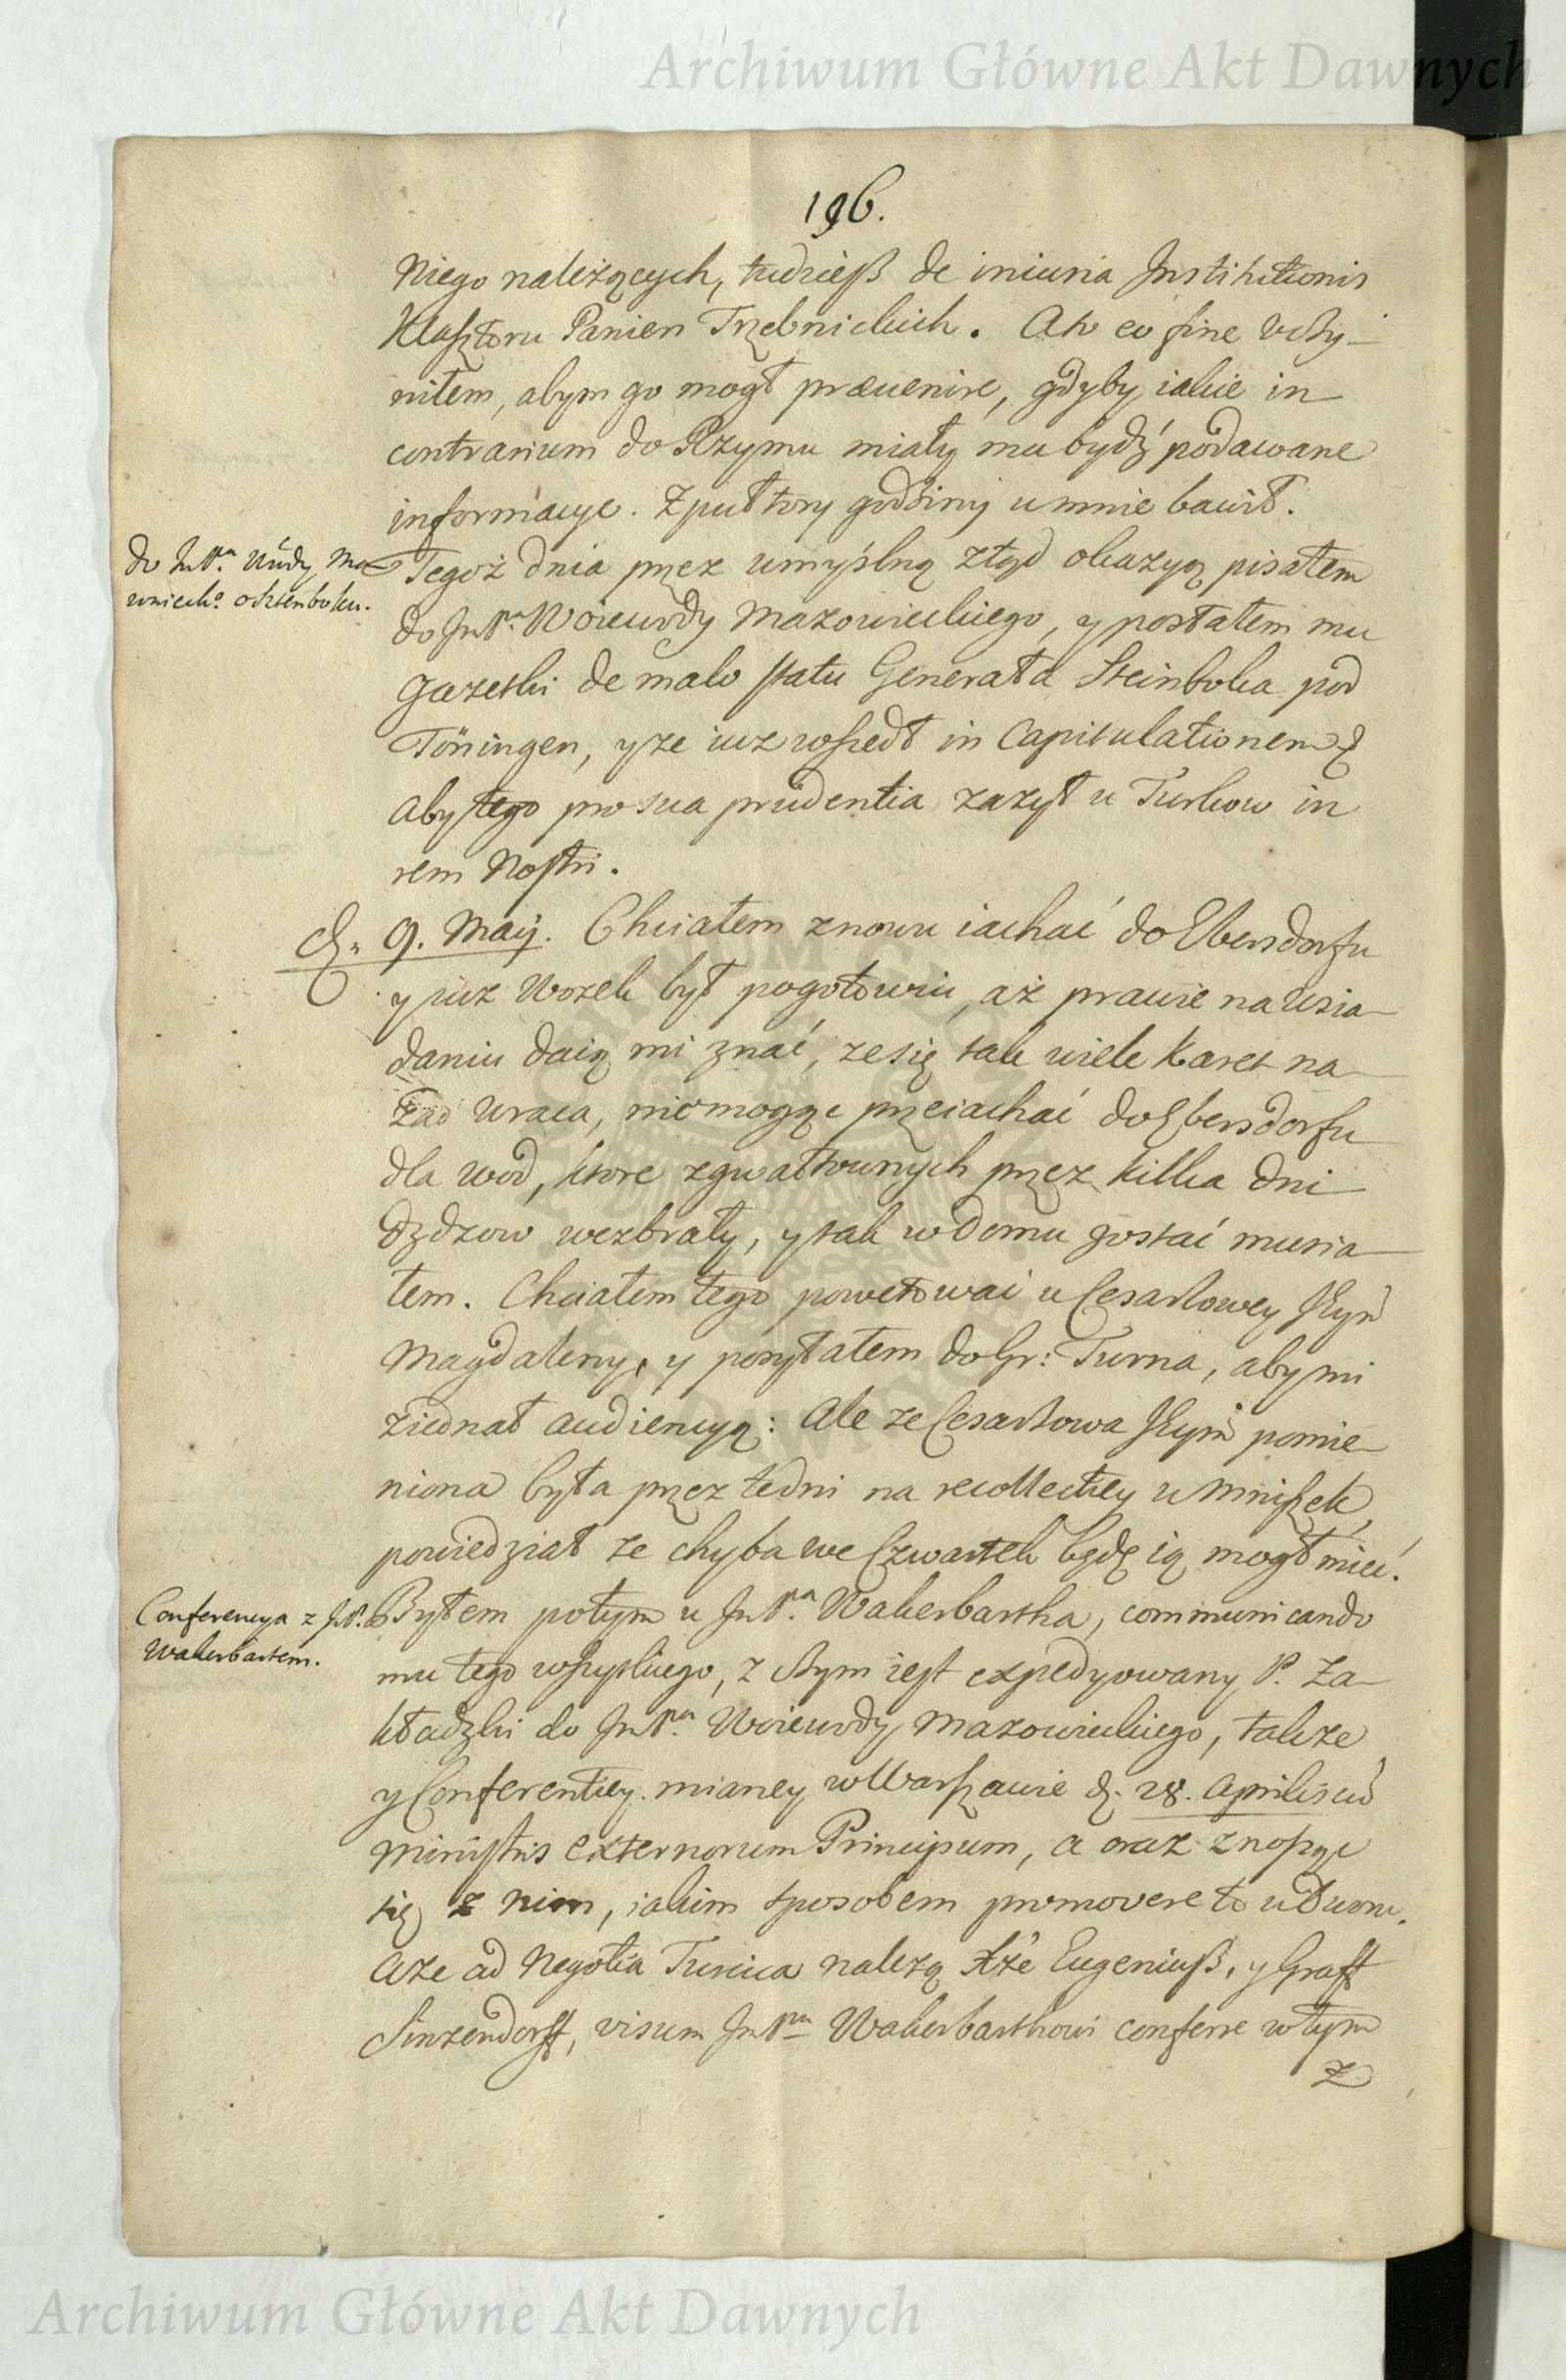 Archiwum Główne Akt Dawnych
196.
Niego należących, tudzieß de iniuria Institutionis
Klasztoru Panien Trzebnickich. A to eo fine vczy-
niłem, abym go mogł præuenire, gdyby iakie in
contrarium do Rzymu miały mu bydź podawane
informacye. Zpułtory godziny u mnie bawił.
do JmPa Wdy Ma-
zowieckο o Sztenboku.
Tegoż dnia przez umyślną ztąd okazyą pisałem
do JmPa Woiewody Mazowieckiego, y posłałem mu
gazetki de malo statu Generała Steinboka pod
Töningen, y ze iuz wszedł in Capitulationem
aby tego pro sua prudentia zazył u Turkow in
rem Nostri.
d. 9. Maij. Chciałem znowu iachać do Ebersdorfu
y iuz Wozek był pogotowiu, aż prawie na wsia-
daniu daią mi znać, ze się tak wiele Karet na-
zad wraca, niemogąc przeiachać do Ebersdorfu
dla wod, ktore zgwałtownych przez kilka dni
dzdzow wezbrały, y tak w domu zostać musia-
łem. Chciałem tego powetować u Cesarzowey JKyń
Magdaleny, y posyłałem do Gr: Turna, aby mi
ziednał audiencyą: Ale ze Cesarzowa JKyń pomie-
niona była przez te dni na recollectiey u Mniszek,
powiedział ze chyba we Czwartek będę ią mogł mieć.
Conferencya z JmP.
Wakerbartem.
Byłem potym u JmPa Wakerbartha, communicando
mu tego wszytkiego, z czym iest expedyowany P. Za-
kładzki do JmPa Woiewody Mazowieckiego, także
y Conferentiey mianey w Warszawie d. 28. Aprilis cu
Ministris Externorum Principum, a oraz znosząc
się z nim, iakim sposobem promovere to u Dworu.
A ze ad Negotia Turcica należą Xże Eugeniuß, y Graff
Sinzendorff, visum JmPu Wakerbarthowi conferre w tym
z
Archiwum Główne Akt Dawnych